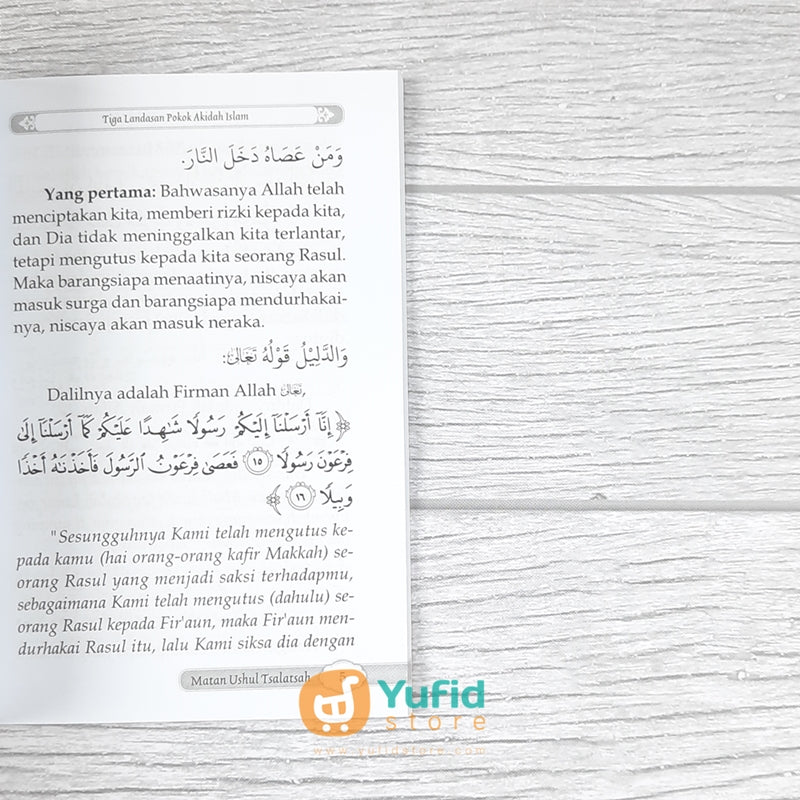 Tiga Landasan Pokok Akidah Islam
وَمَنْ عَصَاهُ دَخَلَ النَّارَ.
Yang pertama: Bahwasanya Allah telah
menciptakan kita, memberi rizki kepada kita,
dan Dia tidak meninggalkan kita terlantar,
tetapi mengutus kepada kita seorang Rasul.
Maka barangsiapa menaatinya, niscaya akan
masuk surga dan barangsiapa mendurhakai-
nya, niscaya akan masuk neraka.
وَالدَّلِيْلُ قَوْلُهُ تَعَالَىٰ:
Dalilnya adalah Firman Allah تَعَالَىٰ,
﴿ إِنَّآ أَرْسَلْنَآ إِلَيْكُمْ رَسُولًا شَٰهِدًا عَلَيْكُمْ كَمَآ أَرْسَلْنَآ إِلَىٰ
فِرْعَوْنَ رَسُولًا ١٥ فَعَصَىٰ فِرْعَوْنُ ٱلرَّسُولَ فَأَخَذْنَٰهُ أَخْذًا
وَبِيلًا ١٦ ﴾
"Sesungguhnya Kami telah mengutus ke-
pada kamu (hai orang-orang kafir Makkah) se-
orang Rasul yang menjadi saksi terhadapmu,
sebagaimana Kami telah mengutus (dahulu) se-
orang Rasul kepada Fir'aun, maka Fir'aun men-
durhakai Rasul itu, lalu Kami siksa dia dengan
Matan Ushul Tsalatsah 5
Yufid
store
www.yufidstore.com